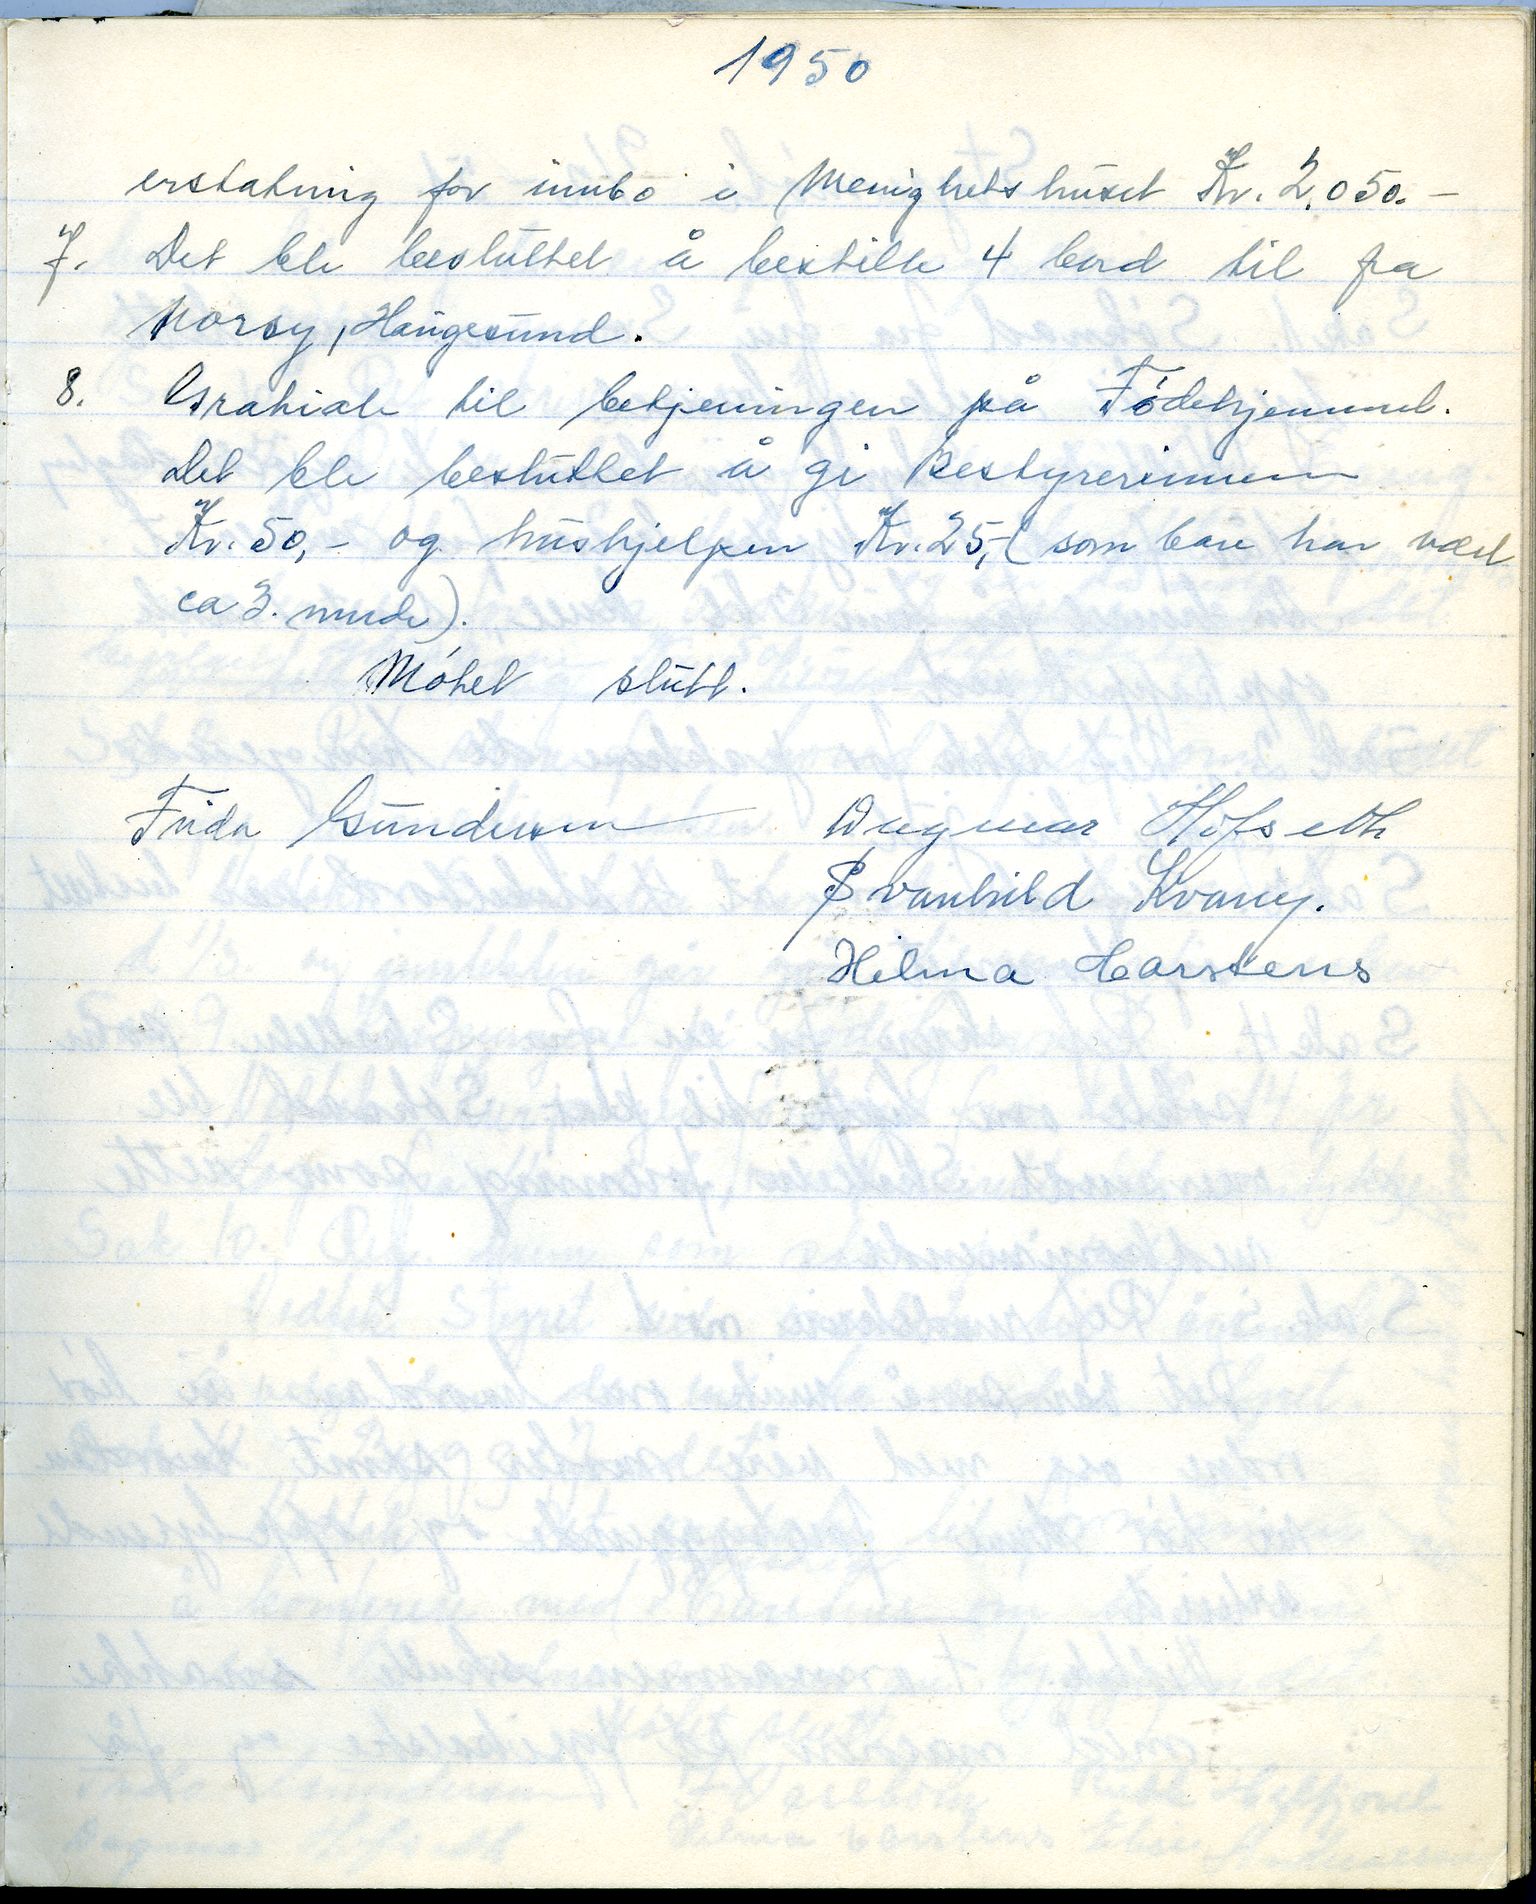 1950
erstatning for innbo i Menighetshuset Kr. 2.050.-
7. Det ble besluttet å bestille 4 bord til fra
Norsy, Haugesund.
8. Gratiale til betjeningen på Fødehjemmet.
Det ble besluttet å gi Bestyrerinnen
Kr. 50,- og hushjelpen Kr. 25,- (som bare har vært
ca 3. mnde).
Møtet slutt.
Frida Gundersen Dagmar Hofseth
Svanhild Kvamy.
Hilma Carstens